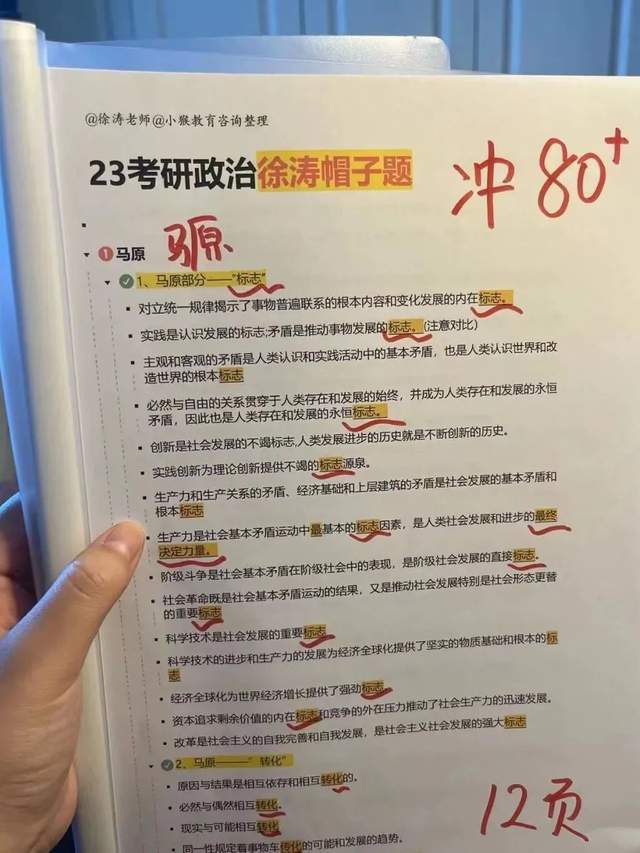 @徐涛老师@小猴教育咨询整理
23考研政治徐涛帽子题
冲80+
1 马原
马原
1、马原部分——"标志"
对立统一规律揭示了事物普遍联系的根本内容和变化发展的内在标志。
实践是认识发展的标志;矛盾是推动事物发展的标志。(注意对比)
主观和客观的矛盾是人类认识和实践活动中的基本矛盾，也是人类认识世界和改
造世界的根本标志
必然与自由的关系贯穿于人类存在和发展的始终，并成为人类存在和发展的永恒
矛盾，因此也是人类存在和发展的永恒标志。
创新是社会发展的不竭标志,人类发展进步的历史就是不断创新的历史。
实践创新为理论创新提供不竭的标志源泉。
生产力和生产关系的矛盾、经济基础和上层建筑的矛盾是社会发展的基本矛盾和
根本标志
生产力是社会基本矛盾运动中最基本的标志因素，是人类社会发展和进步的最终
决定力量。
阶级斗争是社会基本矛盾在阶级社会中的表现，是阶级社会发展的直接标志。
社会革命既是社会基本矛盾运动的结果，又是推动社会发展特别是社会形态更替
的重要标志
科学技术是社会发展的重要标志
科学技术的进步和生产力的发展为经济全球化提供了坚实的物质基础和根本的标
志
经济全球化为世界经济增长提供了强劲标志
资本追求剩余价值的内在标志和竞争的外在压力推动了社会生产力的迅速发展。
改革是社会主义的自我完善和自我发展，是社会主义社会发展的强大标志
2、马原———"转化"
原因与结果是相互依存和相互转化的。
必然与偶然相互转化。
现实与可能相互转化
同一性规定着事物车传化的可能和发展的趋势。
12页